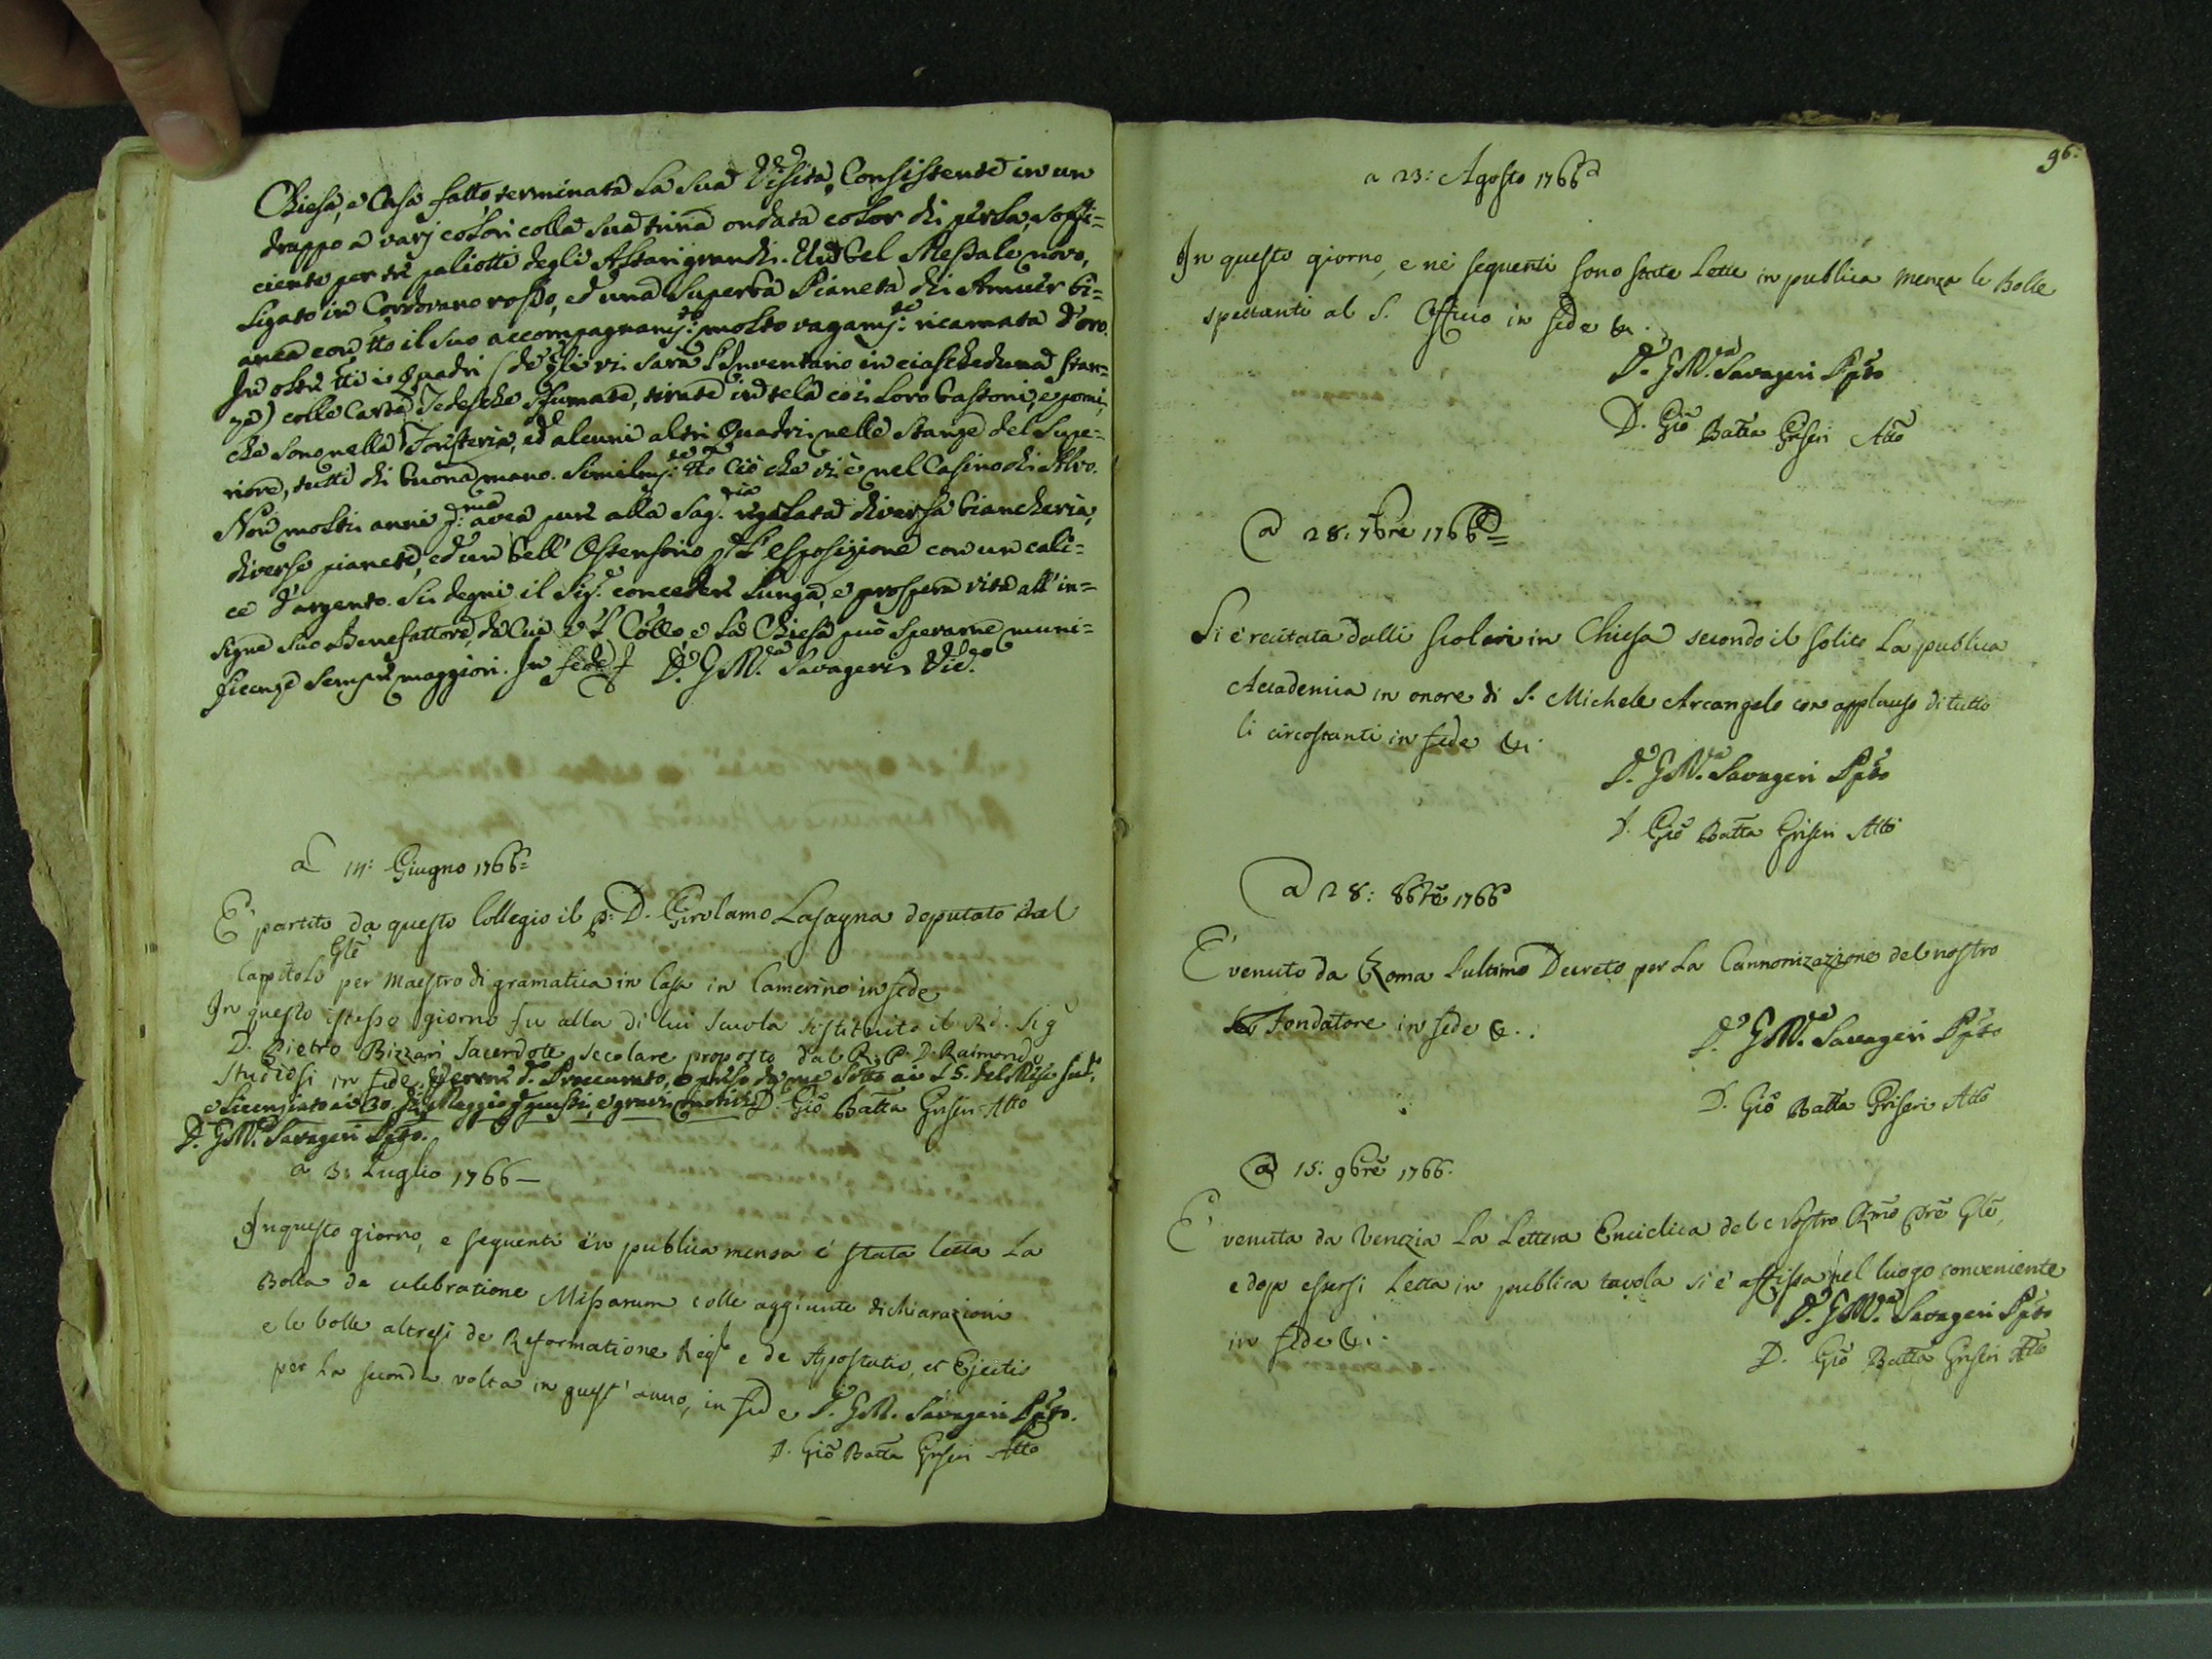 Chiesa, e Casa fatto, terminata la sua Visita, Consistente in un
drappo a varj colori colla sua trina ondata color di perla, soffi=
ciente per tre paliotti degli Altari grandi. Un bel Messale novo,
ligato in Cordovano rosso, ed una superba Pianeta di Amuer bi=
anca con tto il suo accompagnamto: molto vagamte: ricamata d'oro.
In oltre tti i Quadri (de qli vi sarà l'Inventario in ciascheduna stan=
za) colle Carte Tedesche sfumate, tirate in tela coi loro bastoni, e pomi,
che sono nella Foristeria, ed alcuni altri Quadri nelle Stanze del Supe=
riore, tutti di buona mano. Similmte: tto Ciò che vi è nel Casino di Alvo.
Non molti anni pma: avea pure alla Sag.ria regalata diversa biancheria,
diverse pianete, ed un bell' Ostensorio per l' esposizione con un cali=
ce d'argento. Si degni il Sig.e concedere lunga, e prospera vita all' in=
signe suo Benefattore, da Cui e 'l Collo e la Chiesa può sperarne muni=
ficenze sempre maggiori. In fede D. G M.a Savageri Vic.o
a 14: Giugno 1766=
E' partito da questo Collegio il P: D. Girolamo Lasagna deputato dal
Capitolo Gle per Maestro di gramatica in Casa in Camerino in fede
In questo istesso giorno fu alla di lui scuola sostituito il Rd. Sig
D. Pietro Bizzari Sacerdote secolare proposto dal R. P. D. Raimondo
Studiosi in fede
e licenziato ai 30 di Maggio per giusti, e gravi motivi D. Gio Batta Griseri Atto
D. G M.a Savageri Ppto.
a 3: Luglio 1766—
In questo giorno, e seguenti in publica mensa é stata letta La
Bolla de celebratione Missarum colle aggiunte dichiarazioni
e le bolle altresi de Reformatione Reg.le e de Apostatis, et Ejectis
per la seconda volta in quest' anno, in fede D. G M. Savageri Ppto.
D. Gio Batta Griseri Atto
96.
a 23: Agosto 1766
In questo giorno, e nei seguenti sono state Lette in publica menza le Bolle
spettanti al S. Officio in fede &.
D. G M.a Savageri Ppto
D. Gio Batta Griseri Atto
a 28. 7bre 1766=
Si è recitata dalli scolari in Chiesa secondo il solito La publica
Accademia in onore di S. Michele Arcangelo con applauso di tutto
li circostanti in fede &:
D. G M.a Savageri Ppto
D. Gio Batta Griseri Atto
a 28: 8bre 1766
E' venuto da Roma l'ultimo Decreto per La Cannonizazione del nostro
Fondatore in fede &.
D. G M.a Savageri Ppto
D. Gio Batta Griseri Atto
a 15: 9bre 1766.
E' venuta da Venezia La Lettera Enciclica del Nostro Rmo Pre Gle,
e dopo essersi Letta in publica tavola si è affissa nel luogo conveniente
in fede &:
D. G M.a Savageri Ppto
D. Gio Batta Griseri Atto